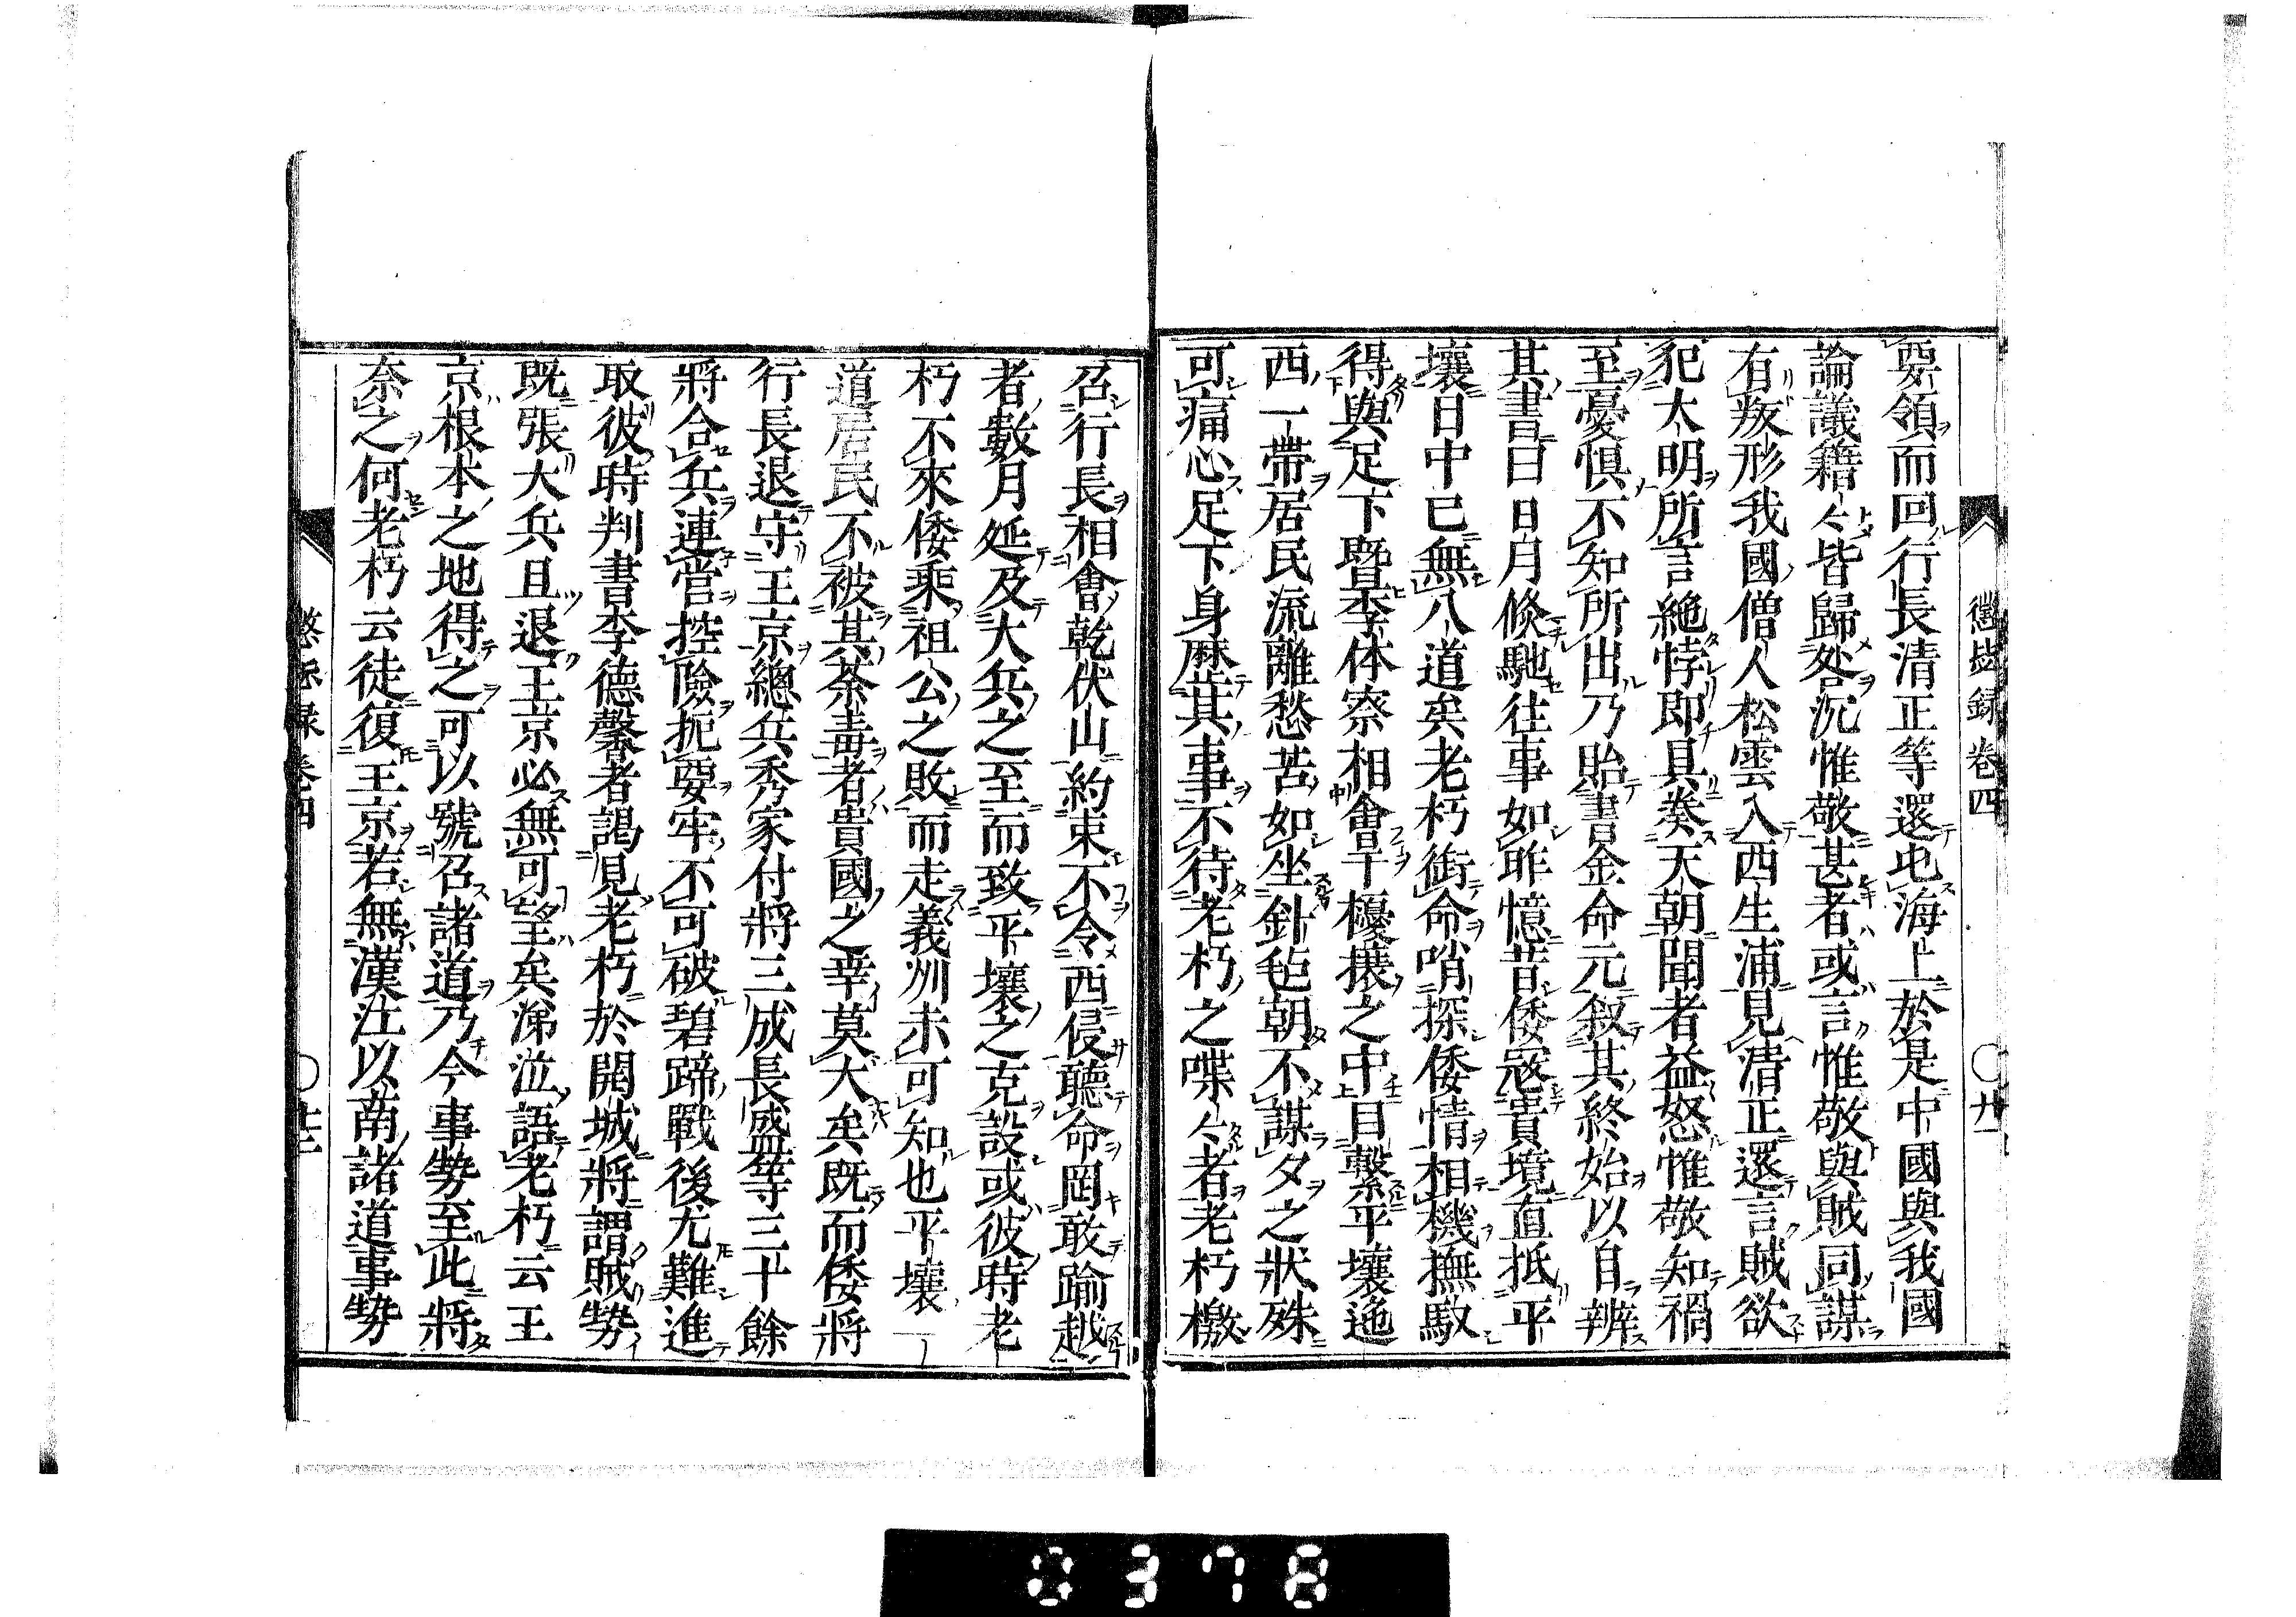 懲毖録 卷四 〇 廿一
要領而回行長清正等還屯海上於是中國與我國
論議籍々皆歸咎沉惟敬甚者或言惟敬與賊同謀
有叛形我國僧人松雲入西生浦見清正還言賊欲
犯大明所言絶悖即具奏天朝聞者益怒惟敬知禍
至憂惧不知所出乃貽書金命元叙其終始以自辨
其書曰日月倐馳往事如昨憶昔倭寇貴境直抵平
壤目中已無八道矣老朽銜命哨探倭情相機撫馭
得與足下曁李体察相會干櫌攘之中目擊平壤迤
西一帶居民流離愁苦如坐針毡朝不謀夕之狀殊
可痛心足下身歴其事不待老朽之喋々者老朽檄
召行長相會乾伏山約束不令西侵聽命罔敢踰越
者數月延及大兵之至而致平壤之克設或彼時老
朽不來倭乘祖公之敗而走義洲未可知也平壤一
道居民不被其荼毒者貴國之幸莫大矣既而倭將
行長退守王京總兵秀家付將三成長盛等三十餘
將合兵連營控險扼要牢不可破碧蹄戰後尤難進
取彼時判書李德馨者謁見老朽於開城將謂賊勢
既張大兵且退王京必無可望矣涕泣語老朽云王
京根本之地得之可以號召諸道乃今事勢至此將
奈之何老朽云徒復王京若無漢江以南諸道事勢
懲毖録 卷四 〇
0378